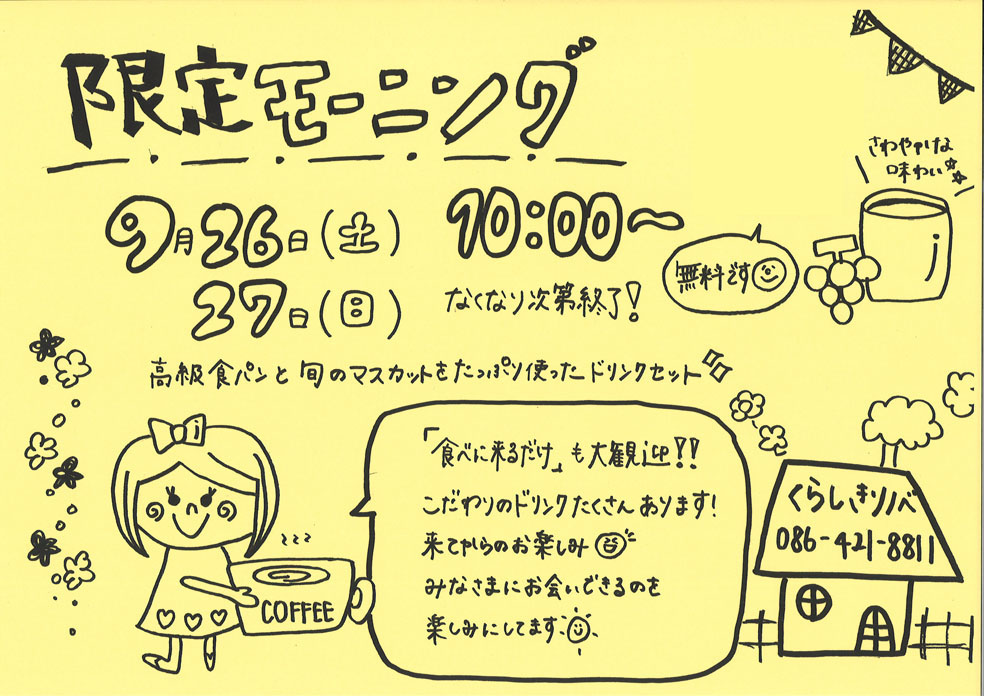 限定モーニング
9月26日(土)
27日(日)
10:00〜
なくなり次第終了!
さわやかな
味わい
無料です
i
高級食パンと旬のマスカットをたっぷり使ったドリンクセット
i
COFFEE
「食べに来るだけ」も大観迎!!
こだわりのドリンクたくさんあります!
来てからのお楽しみ
みなさまにお会いできるのを
楽しみにしてます
くらしきリノベ
086-421-8811